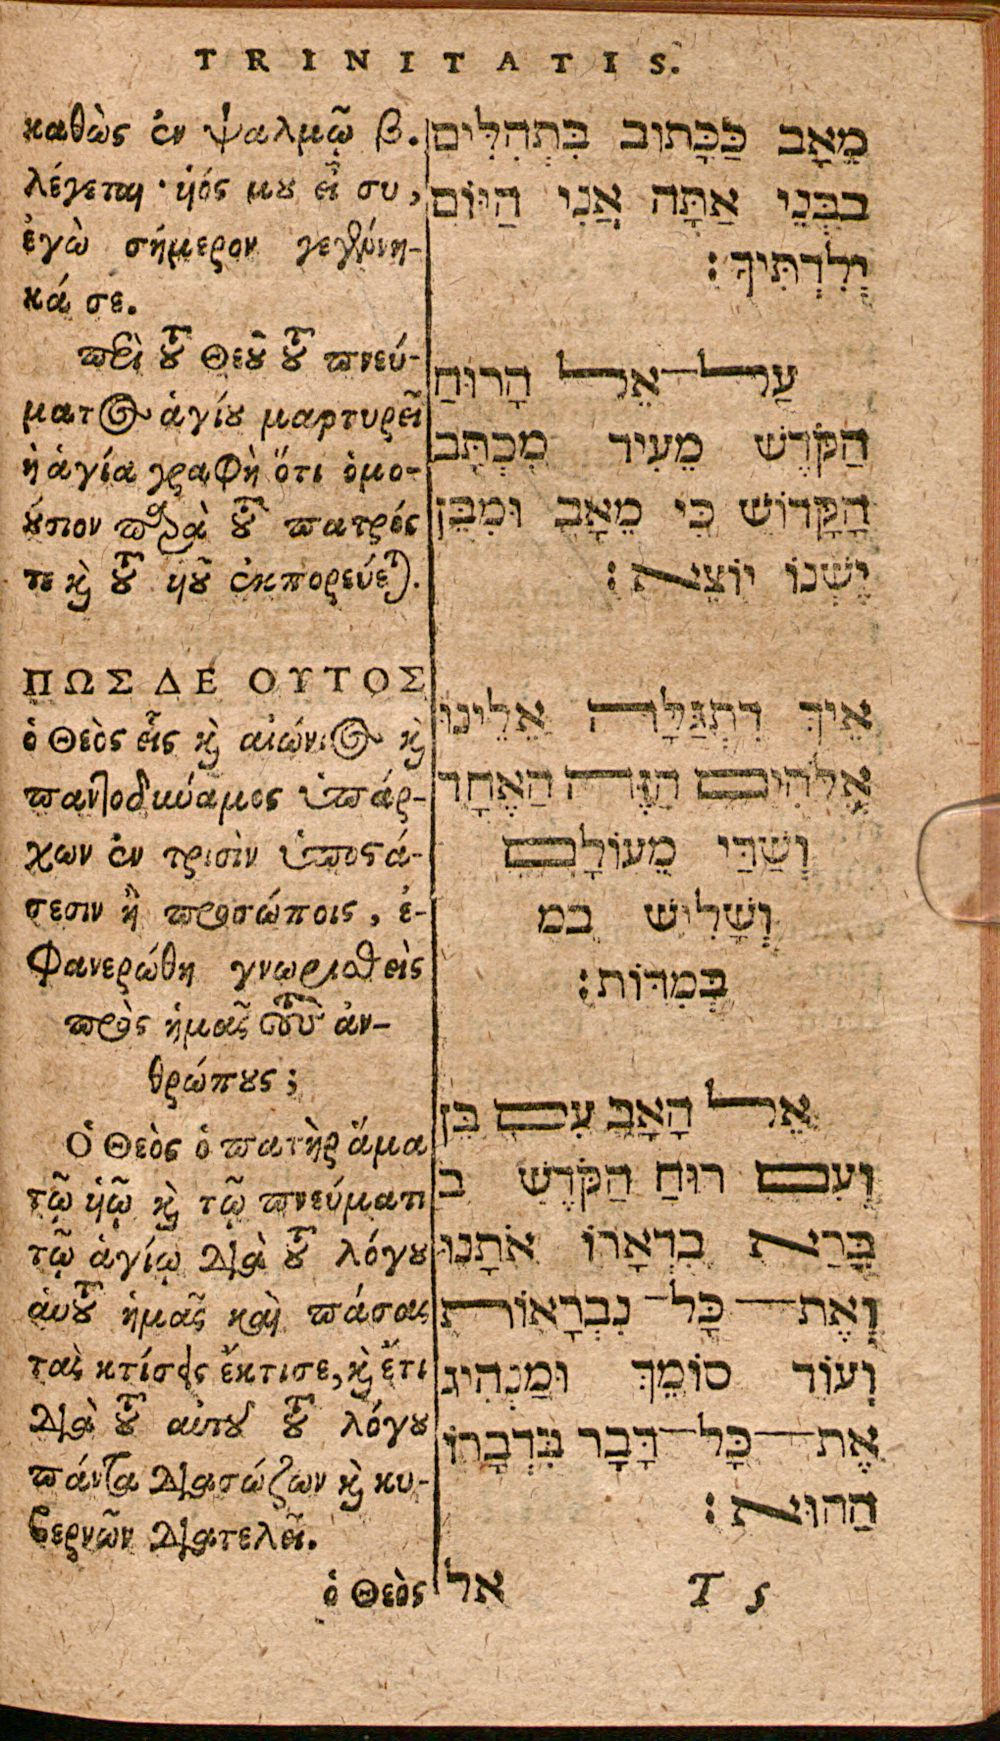 TRINITATIS.
καθὼς ἐν ψαλμῷ β.
λέγεται· ὑιός μου εἶ συ,
ἐγὼ σήμερον γεγέννη-
κά σε.
περὶ τοῦ Θεοῦ τοῦ πνεύ-
ματος ἁγίου μαρτυρεῖ
ἡ ἁγία γραφὴ ὅτι ὁμο-
ούσιον παρὰ τοῦ πατρός
τε καὶ τοῦ ὑιοῦ ἐκπορεύεται.
ΠΩΣ ΔΕ ΟΥΤΟΣ
ὁ Θεὸς εἷς καὶ αἰώνιος καὶ
παντοδυνάμος ὑπάρ-
χων ἐν τρισὶν ὑποστά-
σεσιν ἢ προσώποις, ἐ-
φανερώθη γνωρισθεὶς
πρὸς ἡμᾶς τοὺς ἀν-
θρώπους;
Ὁ Θεὸς ὁ πατὴρ ἅμα
τῷ ὑιῷ καὶ τῷ πνεύματι
τῷ ἁγίῳ διὰ τοῦ λόγου
αὐτοῦ ἡμᾶς καὶ πάσας
τὰς κτίσεις ἔκτισε, καὶ ἔτι
διὰ τοῦ αὐτοῦ τοῦ λόγου
πάντα διασώζων καὶ κυ-
βερνῶν διατελεῖ.
ὁ Θεὸς
מֵאָב כַּכָּתוּב בִּתְהִלִּים
בבְּנֵי אַתָּה אֲנִי הַיּוֹם
יְלִדְתִּיךָ׃
עַל־אֵל הָרוּחַ
הַקֹּדֶשׁ מֵעִיד מִכְתָּב
הַקָּדוֹשׁ כִּי מֵאָב וּמִבֵּן
יֶשְׁנוֹ יוֹצֵא׃
אֵיךְ דִתְגַּלָּה אֵלֵינוּ
אֱלֹהִים הַזֶּה הַאֶחָד
וְשַׁדַּי מֵעוֹלָם
וְשָׁלִישׁ במ
בְּמִדּוֹת׃
אֵל הָאָב עִם בֵּן
וְעִם רוּחַ הַקֹּדֶשׁ ב
בָּרַא בִדְאָרוֹ אֹתָנוּ
וְאֶת־כָּל־נִבְרָאוֹת
וְעוֹד סוֹמֵךְ וּמַנְהִיג
אֶת־כָּל־דָּבָר בִּדְבָרוֹ
הַהוּא׃
אל
T 5